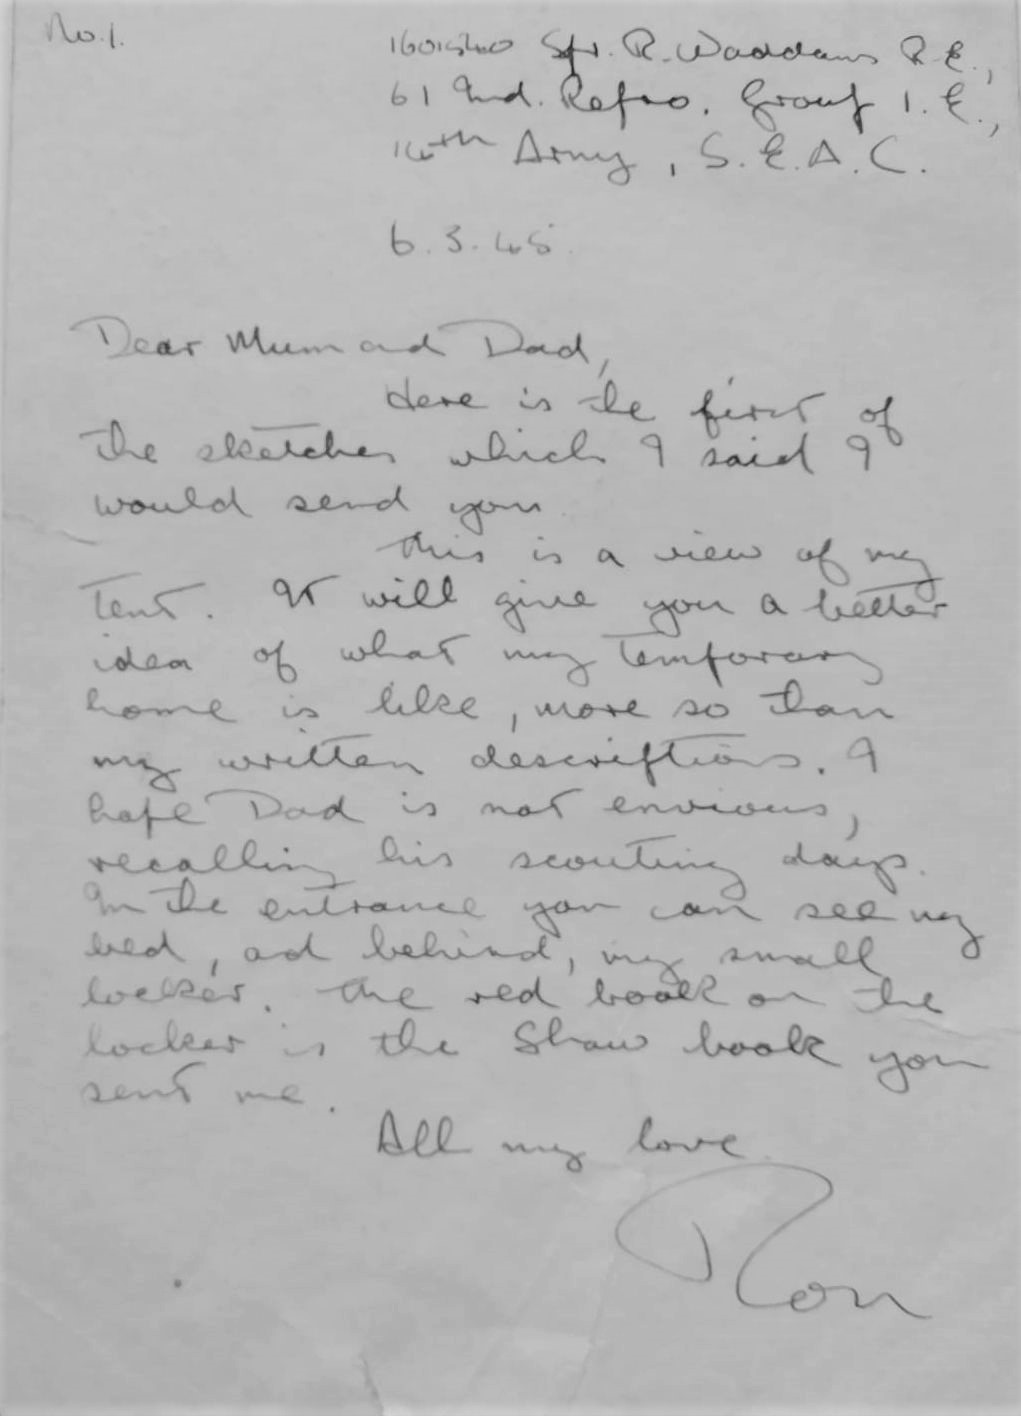 No.1.
Spr. R. Waddams R.E.,
61 Ind. Repro. Group I.E.,
14th Army, S.E.A.C.
6.3.45.
Dear Mum and Dad,
Here is the first of
the sketches which I said I
would send you.
This is a view of my
tent. It will give you a better
idea of what my temporary
home is like, more so than
my written descriptions. I
hope Dad is not envious,
recalling his scouting days.
In the entrance you can see my
bed, and behind, my small
locker. The red book on the
locker is the Shaw book you
sent me.
All my love.
Ron